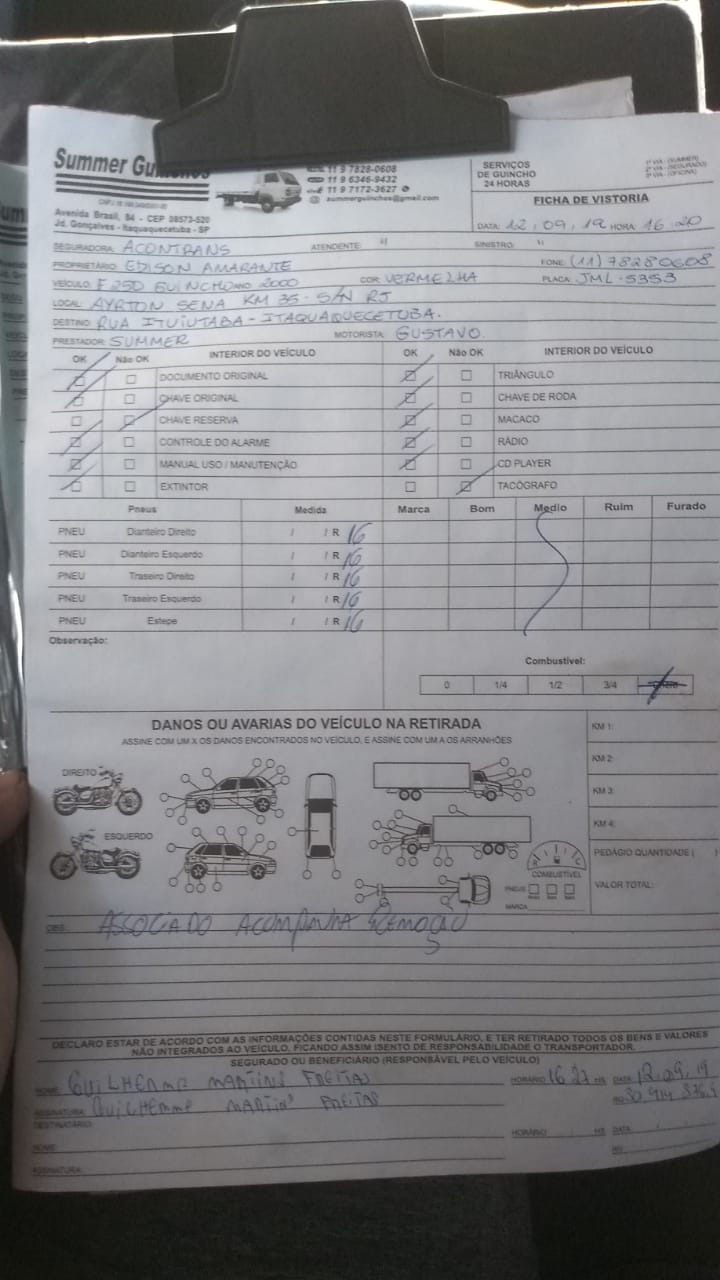 Summer Guinchos
11 9 7828-0608
11 9 6346-9432
11 9 7172-3627
summerguinchos@gmail.com
Avenida Brasil, 84 - CEP 08573-520
Jd. Gonçalves - Itaquaquecetuba - SP
SERVIÇOS
DE GUINCHO
24 HORAS
1ª VIA - (SUMMER)
2ª VIA - (SEGURADO)
3ª VIA - (OFICINA)
FICHA DE VISTORIA
DATA: 12.09.19 HORA: 16.20
SEGURADORA: ACONTRANS ATENDENTE: SINISTRO:
PROPRIETÁRIO: EDISON AMARANTE FONE: (11) 78280608
VEÍCULO: F 250 GUINCHO ANO: 2000 COR: VERMELHA PLACA: JML-5353
LOCAL: AYRTON SENA KM 35 - S/N RJ
DESTINO: RUA ITUIUTABA - ITAQUAQUECETUBA.
PRESTADOR: SUMMER MOTORISTA: GUSTAVO
OK Não OK INTERIOR DO VEÍCULO OK Não OK INTERIOR DO VEÍCULO
DOCUMENTO ORIGINAL TRIÂNGULO
CHAVE ORIGINAL CHAVE DE RODA
CHAVE RESERVA MACACO
CONTROLE DO ALARME RÁDIO
MANUAL USO / MANUTENÇÃO CD PLAYER
EXTINTOR TACÓGRAFO
Pneus Medida Marca Bom Medio Ruim Furado
PNEU Dianteiro Direito / / R 16
PNEU Dianteiro Esquerdo / / R 16
PNEU Traseiro Direito / / R 16
PNEU Traseiro Esquerdo / / R 16
PNEU Estepe / / R 16
Observação:
Combustível:
0 1/4 1/2 3/4
DANOS OU AVARIAS DO VEÍCULO NA RETIRADA
ASSINE COM UM X OS DANOS ENCONTRADOS NO VEÍCULO, E ASSINE COM UM A OS ARRANHÕES
KM 1:
KM 2:
KM 3:
KM 4:
PEDÁGIO QUANTIDADE ( )
VALOR TOTAL:
DIREITO
ESQUERDO
COMBUSTÍVEL
PNEUS
MARCA
OBS: ASSOCIADO ACOMPANHA REMOÇÃO
DECLARO ESTAR DE ACORDO COM AS INFORMAÇÕES CONTIDAS NESTE FORMULÁRIO, E TER RETIRADO TODOS OS BENS E VALORES
NÃO INTEGRADOS AO VEÍCULO, FICANDO ASSIM ISENTO DE RESPONSABILIDADE O TRANSPORTADOR.
SEGURADO OU BENEFICIÁRIO (RESPONSÁVEL PELO VEÍCULO)
NOME: GUILHERME MARTINS FREITAS HORÁRIO 16 27 HS DATA: 12.09.19
ASSINATURA: GUILHERME MARTINS FREITAS RG
DESTINATÁRIO:
NOME: HORÁRIO : HS DATA:
ASSINATURA: RG: